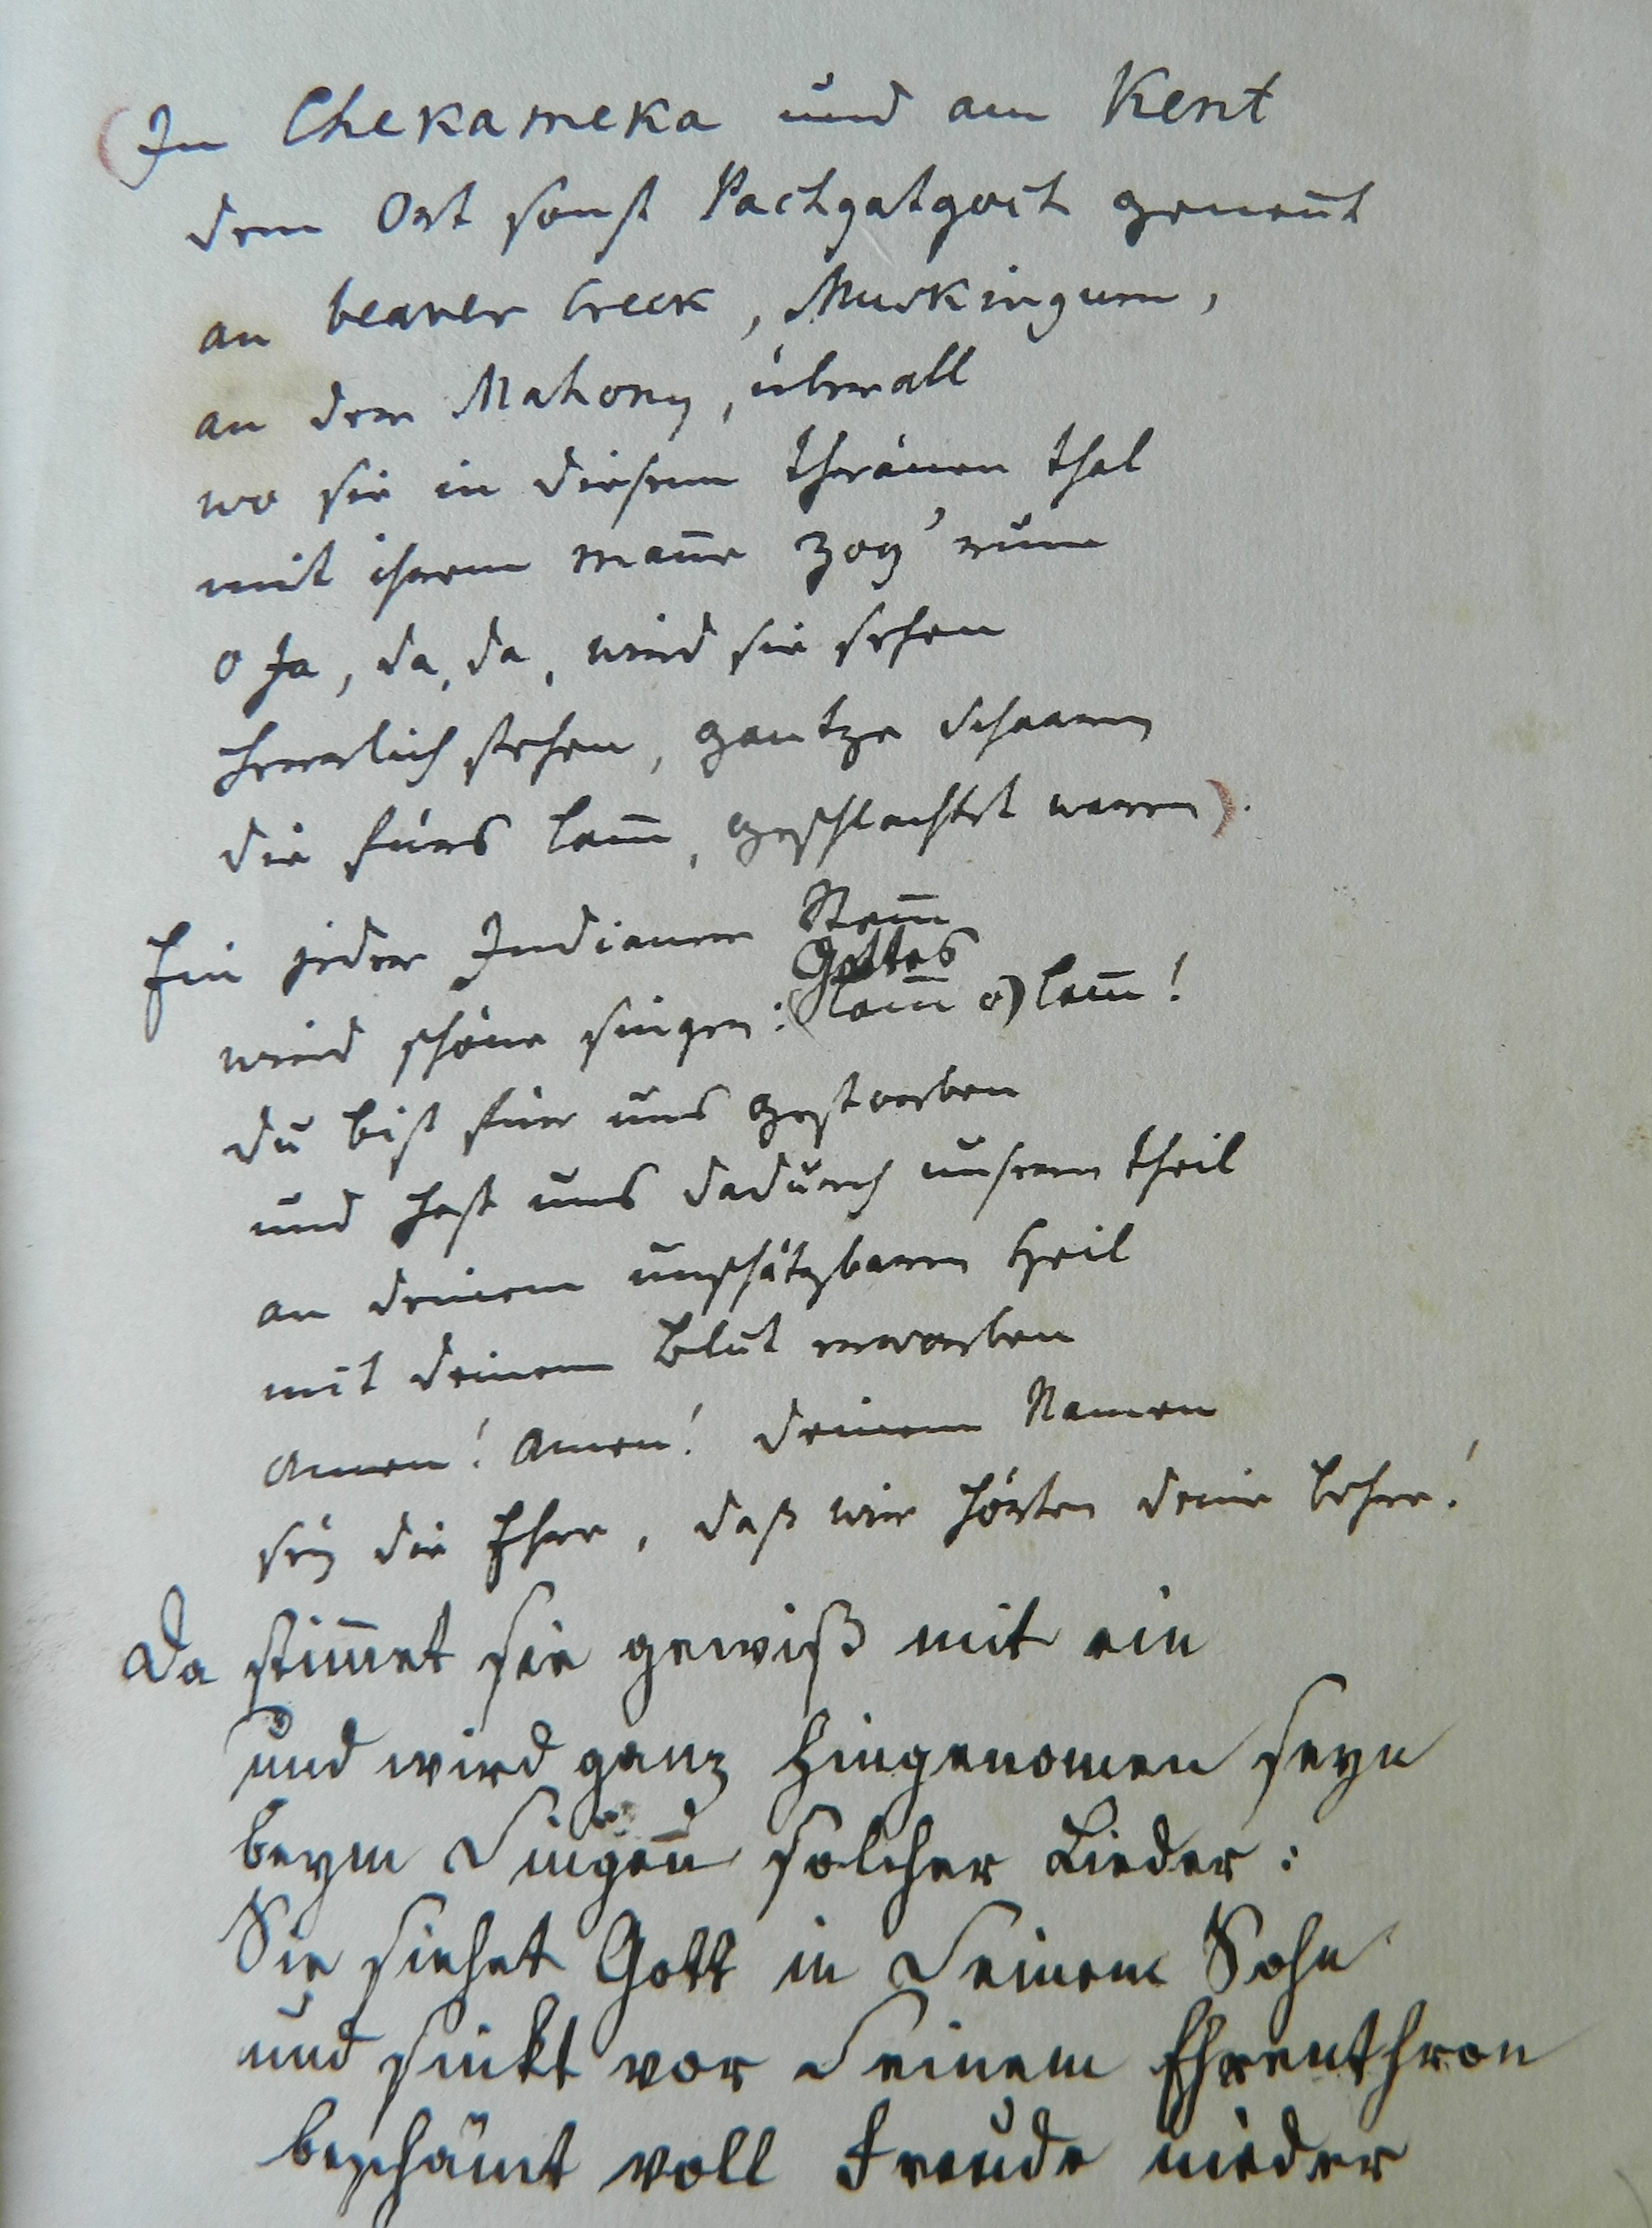 (In Chekameka und am Kent
dem Ort sonst Pachgatgoch genen̅t
an beaver Creek, Muskingum,
an dem Mahony, überall
wo sie in diesem thränen thal
mit ihrem man̅e zog' rum
o Ja, da, da, wird sie sehen
herrlich stehen, gantze Schaaren
die fürs lam̅, geschlachtet waren).
Ein jeder Indianer Stam̅
Gottes
wird schöne singen: (lam̅ o) lam̅!
du bist für uns gestorben
und hast uns dadurch unsern theil
an deinem unschätzbaren Heil
mit deinem Blut erworben
Amen! Amen! deinem Namen
sey die Ehre, daß wir hörten deine Lehre!
Da stim̅et sie gewiß mit ein
und wird ganz hingenomen seyn
beym Singen solcher Lieder:
Sie siehet Gott in Seinem Sohn
und sinkt vor Seinem Ehrenthron
beschämt voll Freude nieder